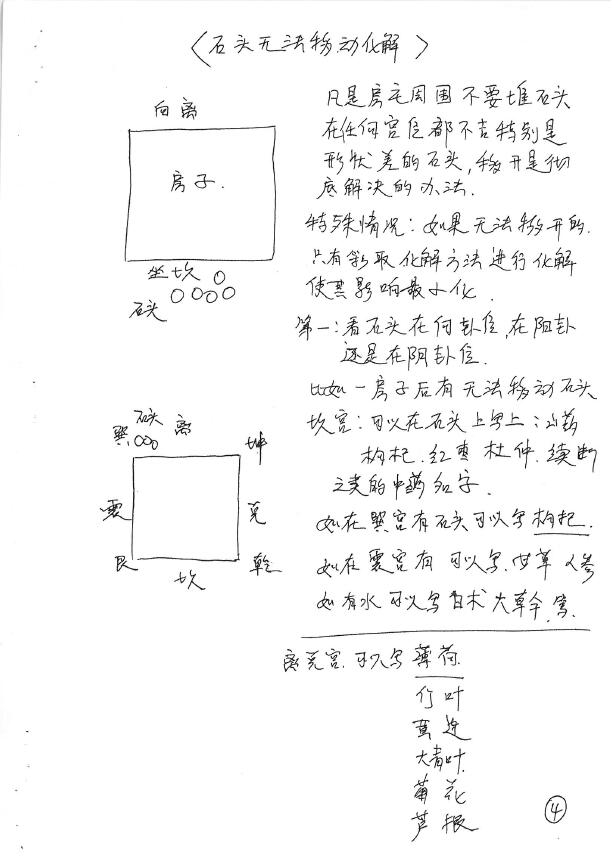 〈石头无法移动化解〉
向离
房子.
坐坎
石头
凡是房宅周围不要堆石头
在任何宫位都不吉特别是
形状差的石头,移开是彻
底解决的办法.
特殊情况:如果无法移开的.
只有采取化解方法进行化解
使其影响最小化.
第一:看石头在何卦位,在阳卦
还是在阴卦位.
比如一房子后有无法移动石头
坎宫:可以在石头上写上:山药
枸杞.红枣 杜仲.续断
之类的中药名字.
如在巽宫有石头可以写枸杞.
如在震宫有 可以写.甘草 人参
如有水 可以写白术 大草
石头
巽 离 坤
震 兑
艮 坎 乾
离兑宫.可以写 薄荷
竹叶
黄连
大青叶
菊花
芦根
④